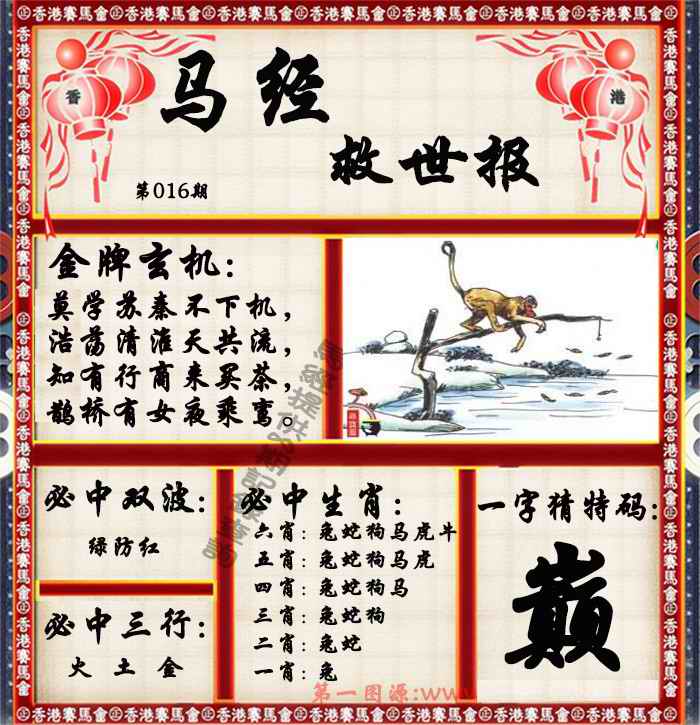 香港賽馬會
香
港
马经
救世报
第016期
金牌玄机：
莫学苏秦不下机，
浩荡清淮天共流，
知有行商来买茶，
鹊桥有女夜乘鸾。
必中双波：
绿防红
必中三行：
火 土 金
必中生肖：
六肖：兔蛇狗马虎牛
五肖：兔蛇狗马虎
四肖：兔蛇狗马
三肖：兔蛇狗
二肖：兔蛇
一肖：兔
一字猜特码：
巅
第一图源:www